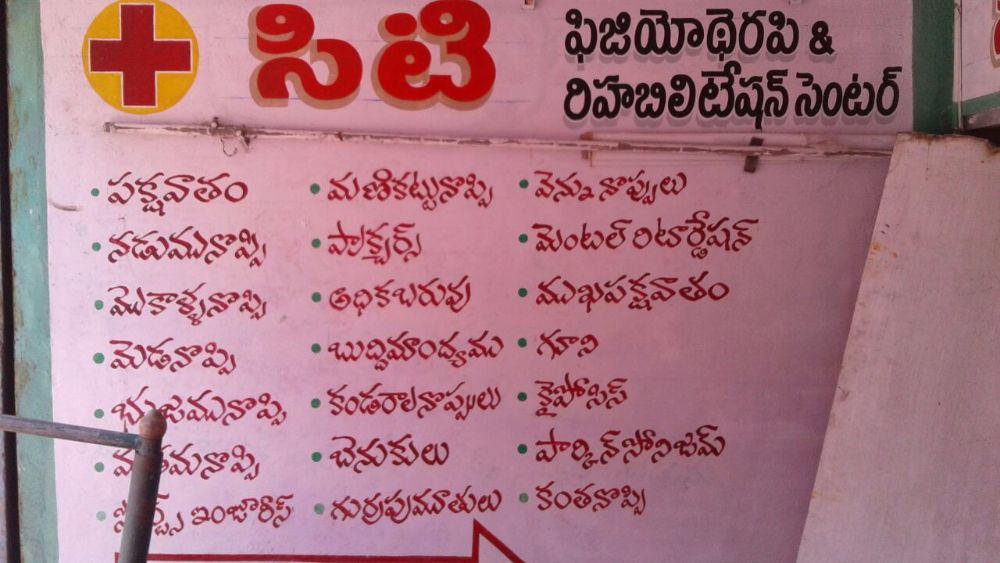 సిటి
ఫిజియోథెరపి &
రిహబిలిటేషన్ సెంటర్
పక్షవాతం
నడుమునొప్పి
మొకాళ్ళనొప్పి
మెడనొప్పి
భుజమునొప్పి
ఇంజూరీస్
మణికట్టునొప్పి
ఫ్రాక్చర్స్
అధికబరువు
బుద్దిమాంద్యము
కండరాలనొప్పులు
బెనుకులు
గుర్రపుమూతులు
వెన్నునొప్పులు
మెంటల్ రిటార్డేషన్
ముఖపక్షవాతం
గూని
కైఫోసిస్
పార్కిన్ సోనిజమ్
కంతనొప్పి